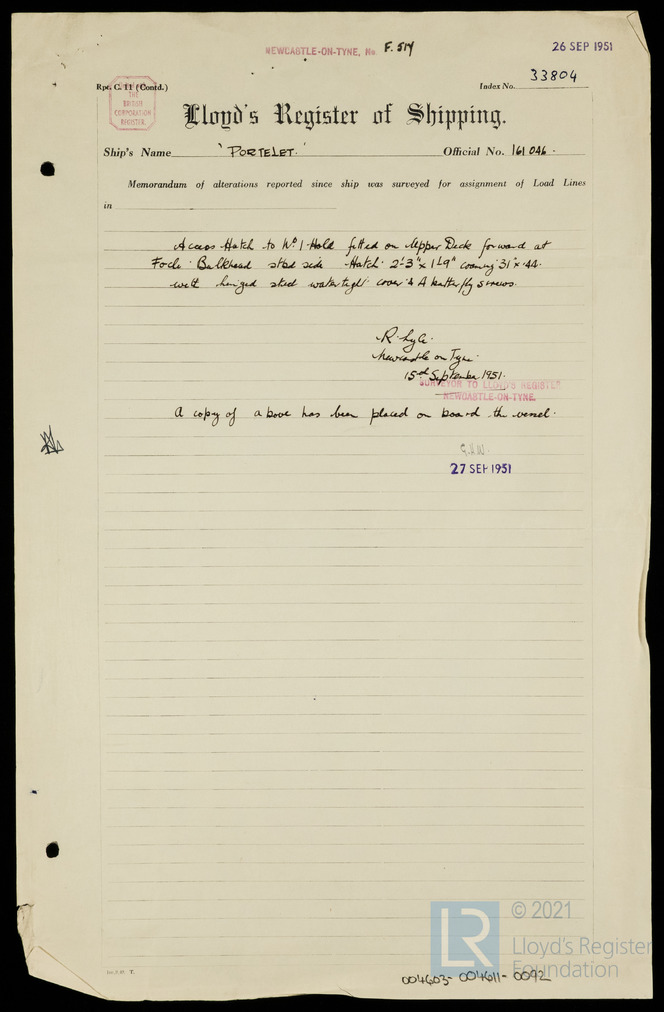 NEWCASTLE-ON-TYNE, No. F. 514
26 SEP 1951
Rpt. C. 11 (Contd.)
Index No. 33804
THE
BRITISH
CORPORATION
REGISTER
Lloyd's Register of Shipping.
Ship's Name 'PORTELET.' Official No. 161046.
Memorandum of alterations reported since ship was surveyed for assignment of Load Lines
in
Access Hatch to No 1 Hold fitted on Upper Deck forward at
Focle Bulkhead stbd side Hatch 2'-3" x 1'-9" coaming 31" x .44
with hinged steel watertight cover & 4 butterfly screws.
R. Lyle
Newcastle on Tyne.
15th September 1951.
SURVEYOR TO LLOYD'S REGISTER
NEWCASTLE-ON-TYNE.
A copy of above has been placed on board the vessel.
27 SEP 1951
© 2021
LR
Lloyd's Register
Foundation
004603-004611-0092